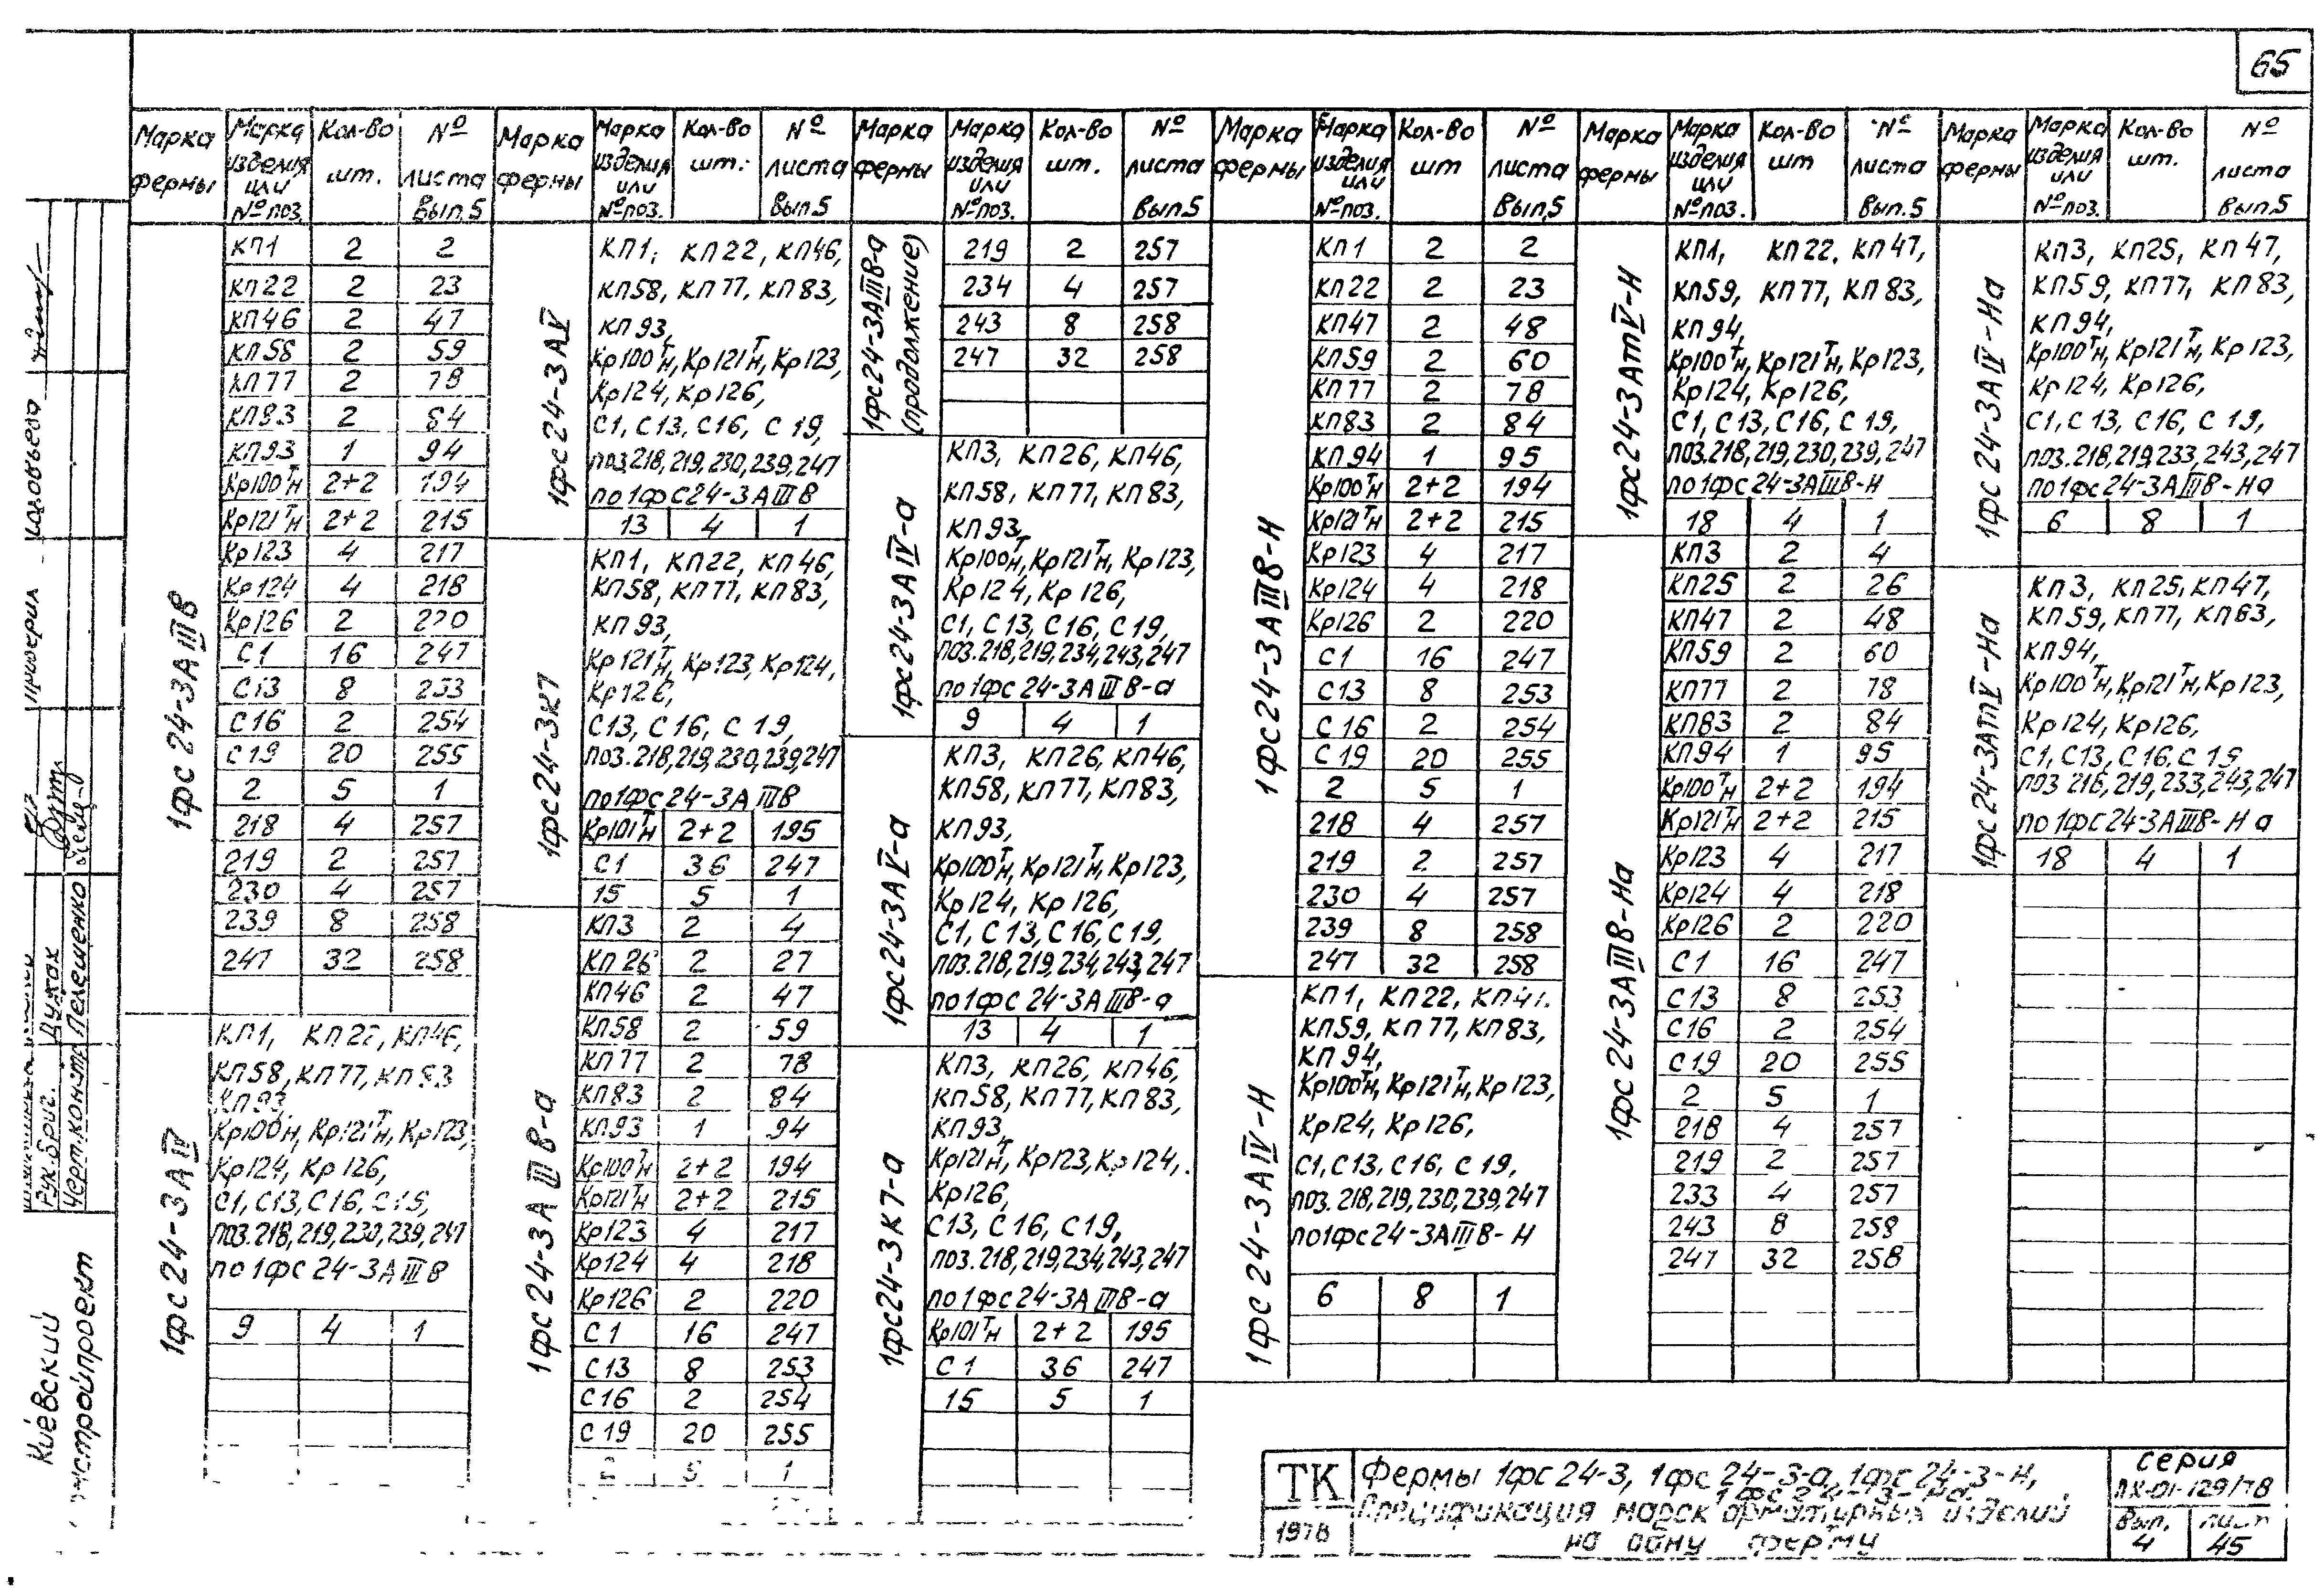 65
Марка фермы | Марка изделия или №поз. | Кол-во шт. | № листа Вып.5
1фс24-3АIIIв
КП1 2 2
КП22 2 23
КП46 2 47
КП58 2 59
КП77 2 78
КП83 2 84
КП93 1 94
Кр100ᵀн 2+2 194
Кр121ᵀн 2+2 215
Кр123 4 217
Кр124 4 218
Кр126 2 220
С1 16 247
С13 8 253
С16 2 254
С19 20 255
2 5 1
218 4 257
219 2 257
230 4 257
239 8 258
247 32 258
1фс24-3АIV
КП1, КП22, КП46,
КП58, КП77, КП83
КП93,
Кр100ᵀн, Кр121ᵀн, Кр123,
Кр124, Кр126,
С1, С13, С16, С19,
поз.218,219,230,239,247
по 1фс24-3АIIIв
9 4 1
Марка фермы | Марка изделия или №поз. | Кол-во шт. | № листа Вып.5
1фс24-3АV
КП1, КП22, КП46,
КП58, КП77, КП83,
КП93,
Кр100ᵀн, Кр121ᵀн, Кр123,
Кр124, Кр126,
С1, С13, С16, С19,
поз.218,219,230,239,247
по 1фс24-3АIIIв
13 4 1
1фс24-3К7
КП1, КП22, КП46,
КП58, КП77, КП83,
КП93,
Кр121ᵀн, Кр123, Кр124,
Кр126,
С13, С16, С19,
поз.218,219,230,239,247
по 1фс24-3АIIIв
Кр101ᵀн 2+2 195
С1 36 247
15 5 1
1фс24-3АIIIв-а
КП3 2 4
КП26 2 27
КП46 2 47
КП58 2 59
КП77 2 78
КП83 2 84
КП93 1 94
Кр100ᵀн 2+2 194
Кр121ᵀн 2+2 215
Кр123 4 217
Кр124 4 218
Кр126 2 220
С1 16 247
С13 8 253
С16 2 254
С19 20 255
2 5 1
Марка фермы | Марка изделия или №поз. | Кол-во шт. | № листа Вып.5
1фс24-3АIIIв-а (продолжение)
219 2 257
234 4 257
243 8 258
247 32 258
1фс24-3АIV-а
КП3, КП26, КП46,
КП58, КП77, КП83,
КП93,
Кр100ᵀн, Кр121ᵀн, Кр123,
Кр124, Кр126,
С1, С13, С16, С19,
поз.218,219,234,243,247
по 1фс24-3АIIIв-а
9 4 1
1фс24-3АV-а
КП3, КП26, КП46,
КП58, КП77, КП83,
КП93,
Кр100ᵀн, Кр121ᵀн, Кр123,
Кр124, Кр126,
С1, С13, С16, С19,
поз.218,219,234,243,247
по 1фс24-3АIIIв-а
13 4 1
1фс24-3К7-а
КП3, КП26, КП46,
КП58, КП77, КП83,
КП93,
Кр121ᵀн, Кр123, Кр124,
Кр126,
С13, С16, С19,
поз.218,219,234,243,247
по 1фс24-3АIIIв-а
Кр101ᵀн 2+2 195
С1 36 247
15 5 1
Марка фермы | Марка изделия или №поз. | Кол-во шт | № листа Вып.5
1фс24-3АIIIв-Н
КП1 2 2
КП22 2 23
КП47 2 48
КП59 2 60
КП77 2 78
КП83 2 84
КП94 1 95
Кр100ᵀн 2+2 194
Кр121ᵀн 2+2 215
Кр123 4 217
Кр124 4 218
Кр126 2 220
С1 16 247
С13 8 253
С16 2 254
С19 20 255
2 5 1
218 4 257
219 2 257
230 4 257
239 8 258
247 32 258
1фс24-3АIV-Н
КП1, КП22, КП47.
КП59, КП77, КП83,
КП94,
Кр100ᵀн, Кр121ᵀн, Кр123,
Кр124, Кр126,
С1, С13, С16, С19,
поз.218,219,230,239,247
по 1фс24-3АIIIв-Н
6 8 1
Марка фермы | Марка изделия или №поз. | Кол-во шт | № листа Вып.5
1фс24-3АтV-Н
КП1, КП22, КП47,
КП59, КП77, КП83,
КП94,
Кр100ᵀн, Кр121ᵀн, Кр123,
Кр124, Кр126,
С1, С13, С16, С19,
поз.218,219,230,239,247
по 1фс24-3АIIIв-Н
18 4 1
1фс24-3АIIIв-На
КП3 2 4
КП25 2 26
КП47 2 48
КП59 2 60
КП77 2 78
КП83 2 84
КП94 1 95
Кр100ᵀн 2+2 194
Кр121ᵀн 2+2 215
Кр123 4 217
Кр124 4 218
Кр126 2 220
С1 16 247
С13 8 253
С16 2 254
С19 20 255
2 5 1
218 4 257
219 2 257
233 4 257
243 8 258
247 32 258
Марка фермы | Марка изделия или №поз. | Кол-во шт. | № листа Вып.5
1фс24-3АIV-На
КП3, КП25, КП47,
КП59, КП77, КП83,
КП94,
Кр100ᵀн, Кр121ᵀн, Кр123,
Кр124, Кр126,
С1, С13, С16, С19,
поз.218,219,233,243,247
по 1фс24-3АIIIв-На
6 8 1
1фс24-3АтV-На
КП3, КП25, КП47,
КП59, КП77, КП83,
КП94,
Кр100ᵀн, Кр121ᵀн, Кр123,
Кр124, Кр126,
С1, С13, С16, С19
поз 218,219,233,243,247
по 1фс24-3АIIIв-На
18 4 1
Проверил
Рук.бриг. Цужак
Черт.конт. Пелешенко
Киевский
ТК
1978
Фермы 1фс24-3, 1фс24-3-а, 1фс24-3-Н,
1фс24-3-На.
Спецификация марок арматурных изделий
на одну ферму
серия
ПК-01-129/78
Вып. 4
лист 45